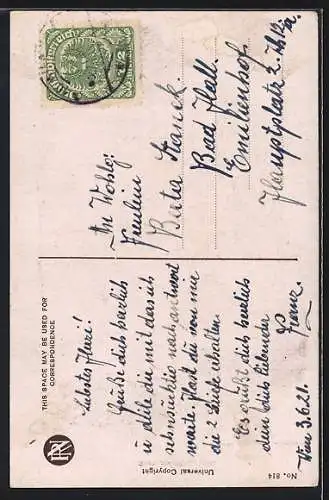 THIS SPACE MAY BE USED FOR
CORRESPONDENCE
Liebstes Mizi!
Grüße dich herzlich
u teile dir mit das ich
sehnsüchtig nach antwort
warte. Hast du von mir
die 2 Briefe erhalten.
Es grüßt dich herzlich
dein dich liebender
Franz.
Wien 3.6.21.
An Wohlg.
Fräulein
Berta Stanek
Bad Hall.
Emilienhof
Hauptplatz 2.
Universal Copyright
No. 814